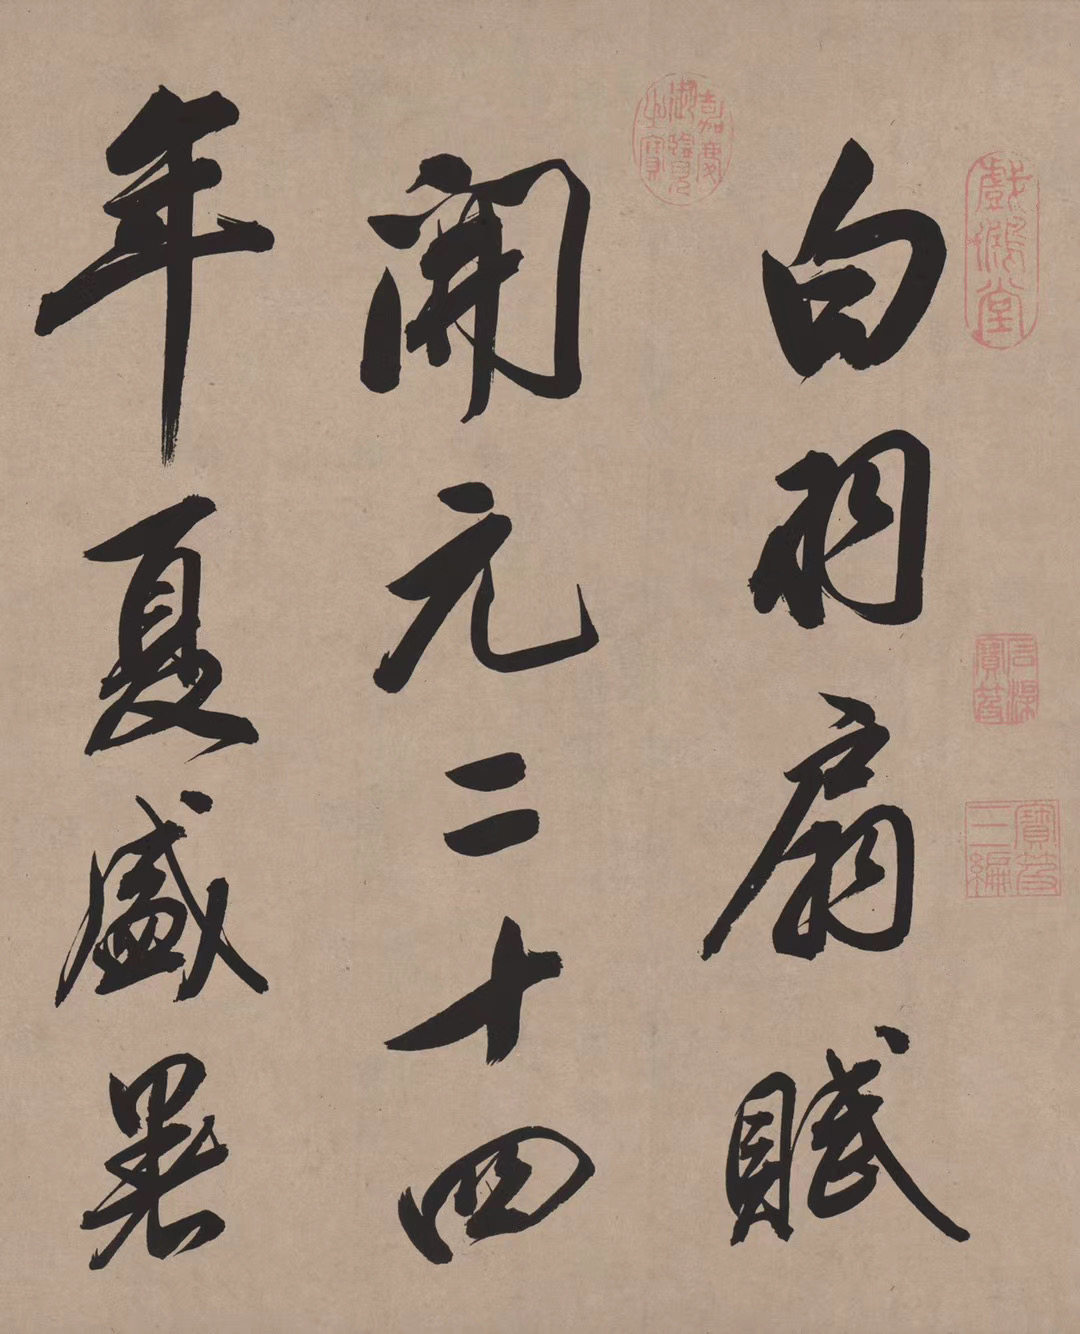 白羽扇賦
開元二十四
年夏盛暑
戲鴻堂
嘉慶御覽之寶
石渠寶笈
寶笈三編